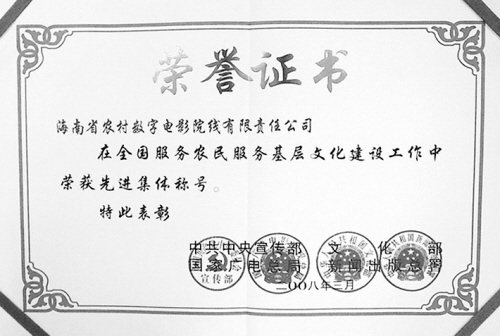 荣誉证书
海南省农村数字电影院线有限责任公司
在全国服务农民服务基层文化建设工作中
荣获先进集体称号。
特此表彰
中共中央宣传部 文化部
国家广电总局 新闻出版总署
宣传部
二〇〇八年三月